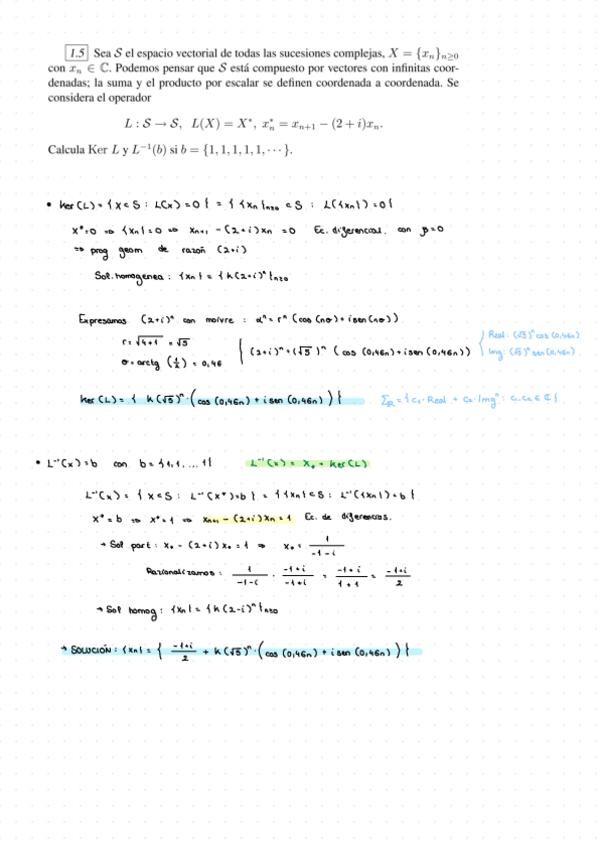 1.5 Sea S el espacio vectorial de todas las sucesiones complejas, X = {xₙ}ₙ≥₀
con xₙ ∈ ℂ. Podemos pensar que S está compuesto por vectores con infinitas coor-
denadas; la suma y el producto por escalar se definen coordenada a coordenada. Se
considera el operador
L : S → S, L(X) = X*, x*ₙ = xₙ₊₁ − (2 + i)xₙ.
Calcula Ker L y L⁻¹(b) si b = {1, 1, 1, 1, 1, ⋯ }.
• Ker(L) = { X ∈ S : L(X) = 0 } = { {xₙ}ₙ≥₀ ∈ S : L({xₙ}) = 0 }
X* = 0 ⇒ {xₙ} = 0 ⇒ xₙ₊₁ − (2+i)xₙ = 0 Ec. diferencial. con β=0
⇒ prog geom de razón (2+i)
Sol. homogenea : {xₙ} = { K(2+i)ⁿ }ₙ≥₀
Expresamos (2+i)ⁿ con moivre : αⁿ = rⁿ (cos(nσ) + i sen(nσ))
r = √4+1 = √5
σ = arctg (1/2) = 0,46
{ (2+i)ⁿ = (√5)ⁿ (cos(0,46n) + i sen(0,46n))
{ Real: (√5)ⁿ cos(0,46n)
Img: (√5)ⁿ sen(0,46n)
Ker(L) = { K(√5)ⁿ · (cos(0,46n) + i sen(0,46n)) }
Σ_R = { c₁· Real + c₂ · Imgⁿ : c₁, c₂ ∈ ℂ }
• L⁻¹(x) = b con b = {1, 1, ... 1} L⁻¹(x) = X₀ + Ker(L)
L⁻¹(x) = { X ∈ S : L⁻¹(x*) = b } = { {xₙ} ∈ S : L⁻¹({xₙ}) = b }
X* = b ⇒ X* = 1 ⇒ xₙ₊₁ − (2+i)xₙ = 1 Ec. de diferencias.
→ Sol part : X₀ − (2+i) X₀ = 1 ⇒ X₀ = 1/(-1-i)
Razionalizamos : 1/(-1-i) · (-1+i)/(-1+i) = (-1+i)/(1+1) = (-1+i)/2
→ Sol homog : {xₙ} = { K(2-i)ⁿ }ₙ≥₀
→ SOLUCIÓN : {xₙ} = { (-1+i)/2 + K(√5)ⁿ · (cos(0,46n) + i sen(0,46n)) }